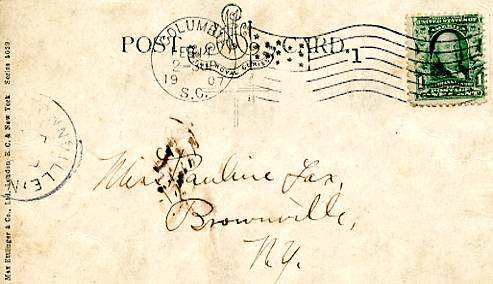 POST CARD.
COLUMBIA
FEB
2-30
1907
S.C.
1
UNITED STATES OF AMERICA
1
Miss Pauline Fox,
Brownville,
N.Y.
Max Ettlinger & Co., Ltd., London, E. C. & New York. Series 4639